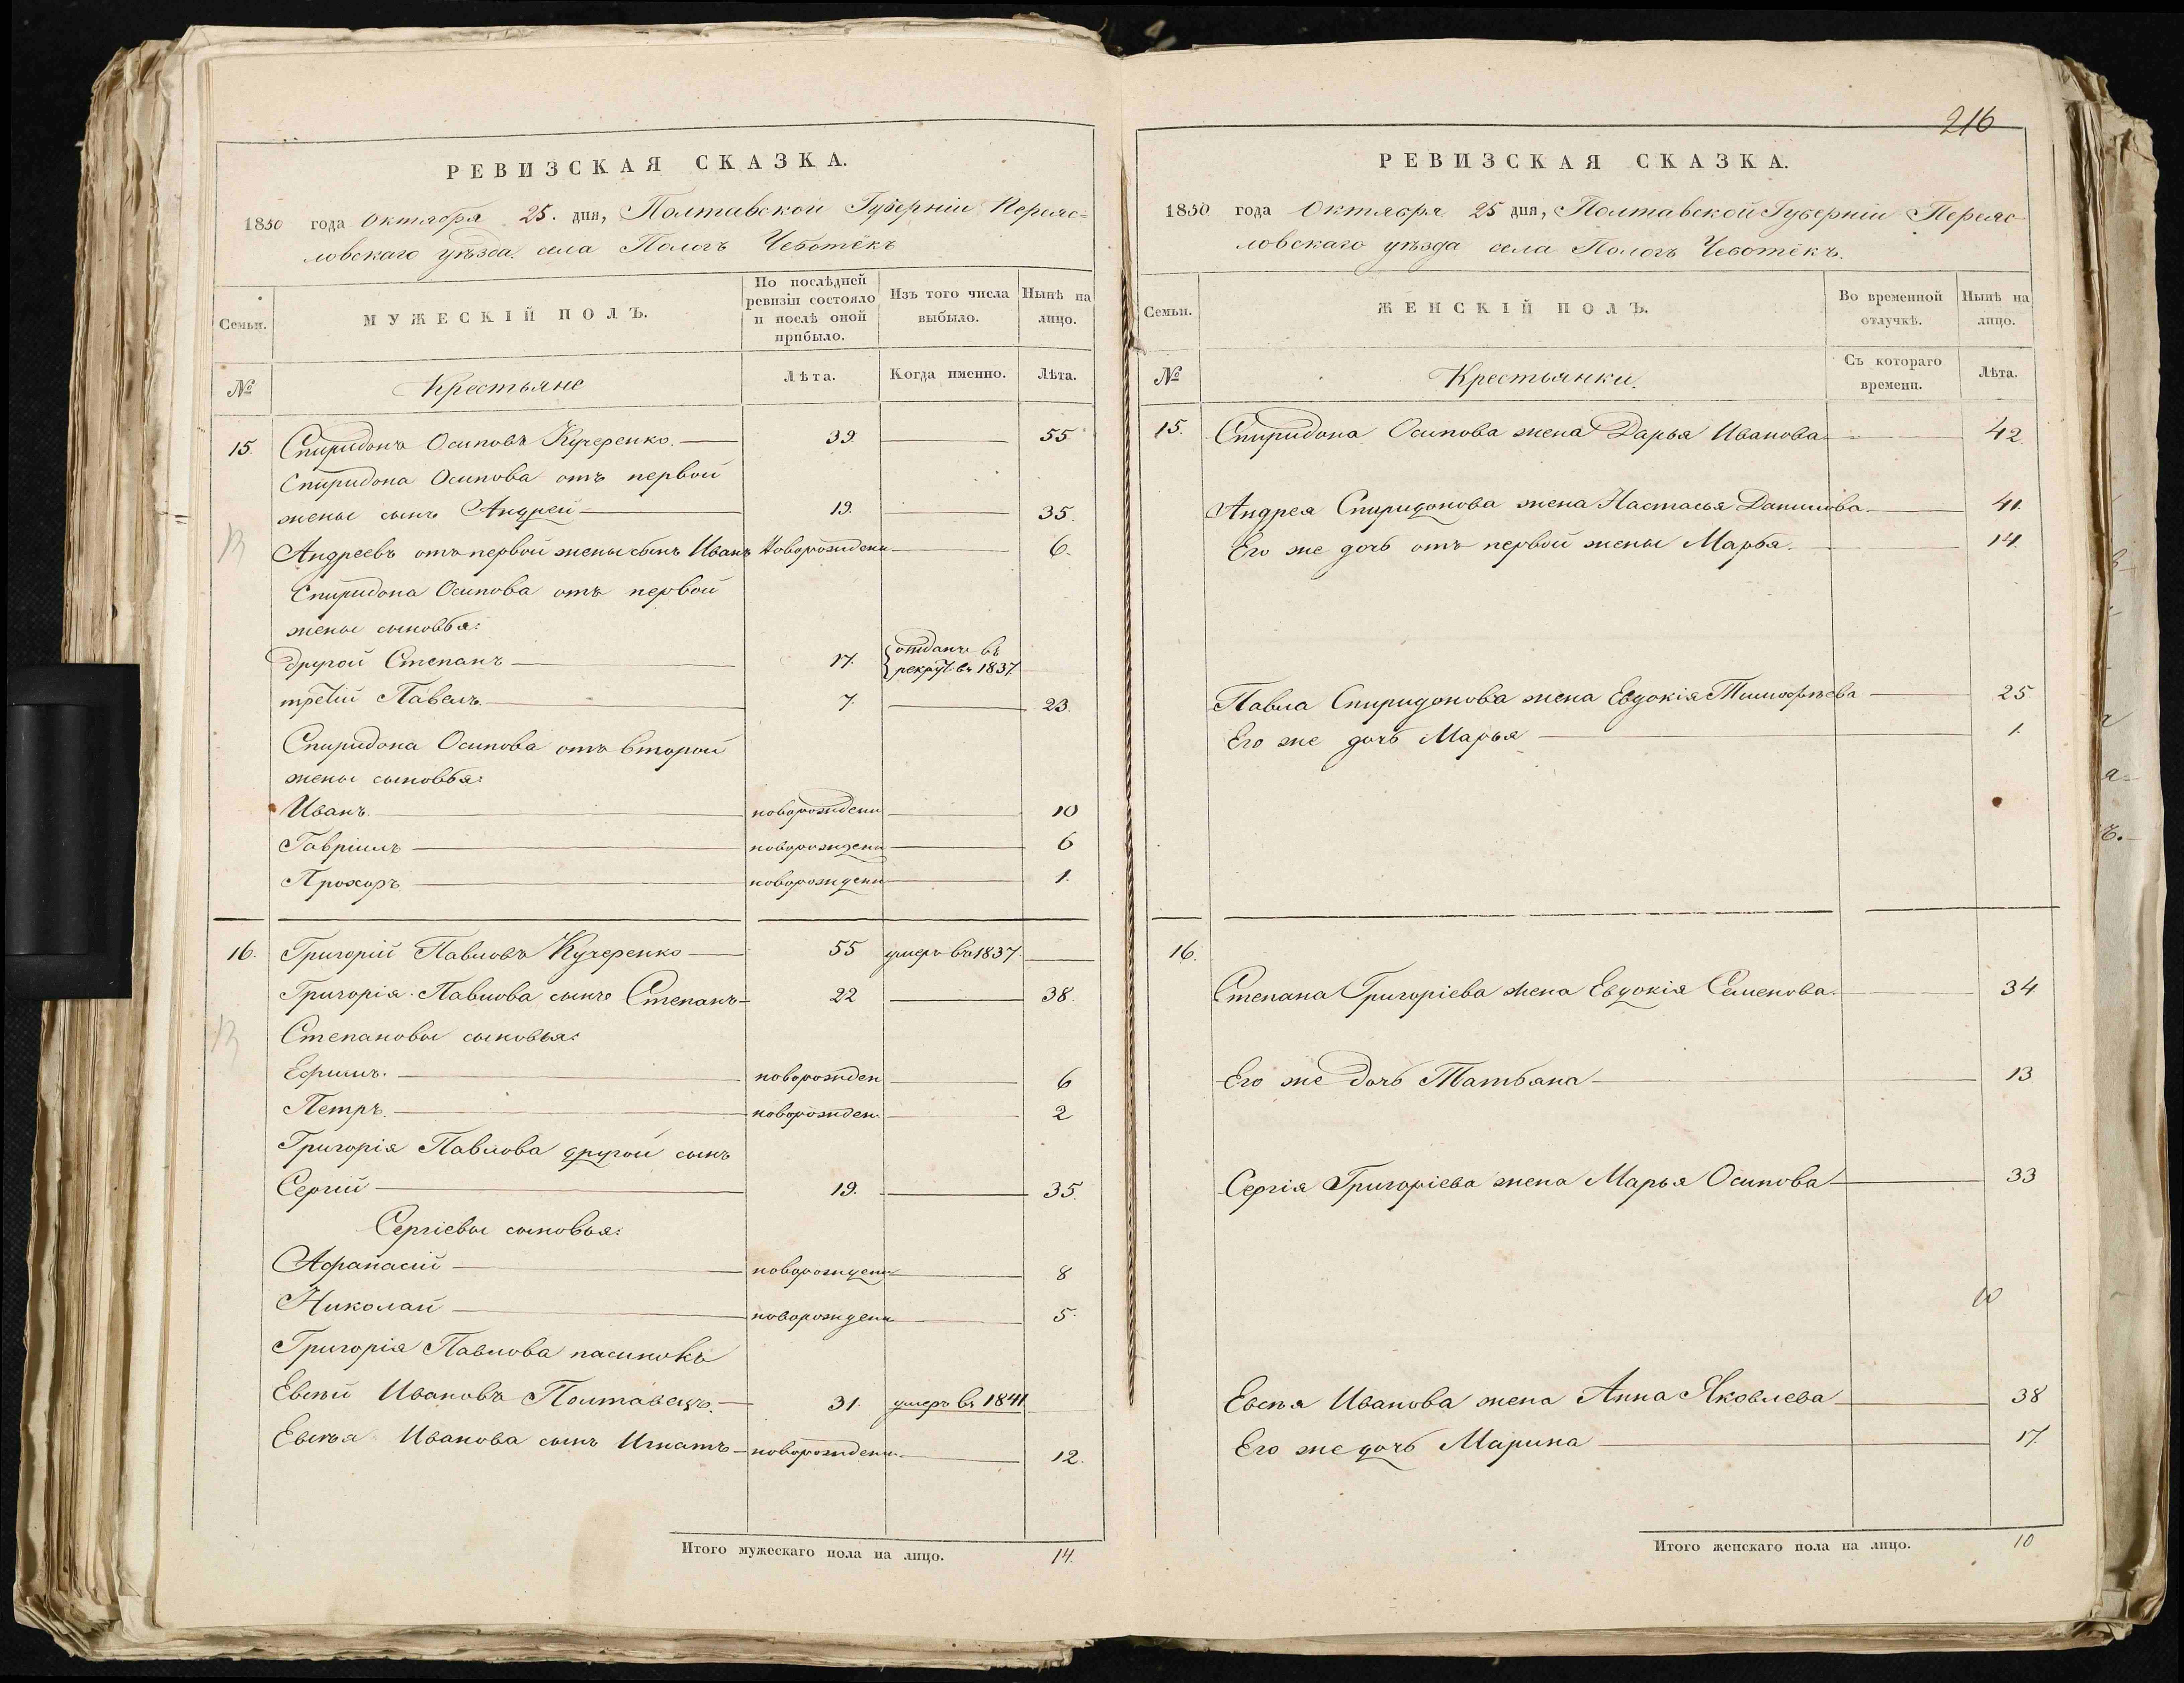 РЕВИЗСКАЯ СКАЗКА.
1850 года Октября 25. дня, Полтавской Губерніи Переяс=
ловскаго уѣзда села Пологъ Чеботёкъ
Семьи.
МУЖЕСКІЙ ПОЛЪ.
По послѣдней ревизіи состояло и послѣ оной прибыло.
Изъ того числа выбыло.
Нынѣ на лицо.
№
Крестьяне
Лѣта.
Когда именно.
Лѣта.
15. Спиридонъ Осиповъ Кучеренко. 39. 55
Спиридона Осипова отъ первой
жены сынъ Андрей 19. 35.
Андреевъ отъ первой жены сынъ Иванъ Новорожденъ 6.
Спиридона Осипова отъ первой
жены сыновья:
другой Степанъ 17. отданъ въ рекрут. въ 1837.
третій Павелъ 7. 23.
Спиридона Осипова отъ второй
жены сыновья:
Иванъ. новорожденъ 10
Гавріилъ новорожденъ 6
Прохоръ новорожденъ 1.
16. Григорій Павловъ Кучеренко 55 умеръ въ 1837.
Григорія Павлова сынъ Степанъ 22 38.
Степановы сыновья:
Ефимъ. новорожден 6
Петръ. новорожденъ 2
Григорія Павлова другой сынъ
Сергій 19. 35.
Сергіевы сыновья:
Афанасій новорожденъ 8
Николай новорожденъ 5.
Григорія Павлова пасинокъ
Евсѣй Ивановъ Полтавецъ. 31. умеръ въ 1841
Евсѣя Иванова сынъ Игнатъ новорожденъ. 12.
Итого мужескаго пола на лицо. 14.
216
РЕВИЗСКАЯ СКАЗКА.
1850 года Октября 25 дня, Полтавской Губерніи Переяс
ловскаго уѣзда села Пологъ Чеботёкъ.
Семьи.
ЖЕНСКІЙ ПОЛЪ.
Во временной отлучкѣ.
Нынѣ на лицо.
№
Крестьянки.
Съ котораго времени.
Лѣта.
15. Спиридона Осипова жена Дарья Иванова 42.
Андрея Спиридонова жена Настасья Данилова 41.
Его же дочь отъ первой жены Марья. 14.
Павла Спиридонова жена Евдокія Тимофѣева 25
Его же дочь Марья 1.
16.
Степана Григоріева жена Евдокія Семенова. 34
Его же дочь Татьяна 13
Сергія Григоріева жена Марья Осипова 33
10
Евсѣя Иванова жена Анна Яковлева 38
Его же дочь Марина 17.
Итого женскаго пола на лицо. 10